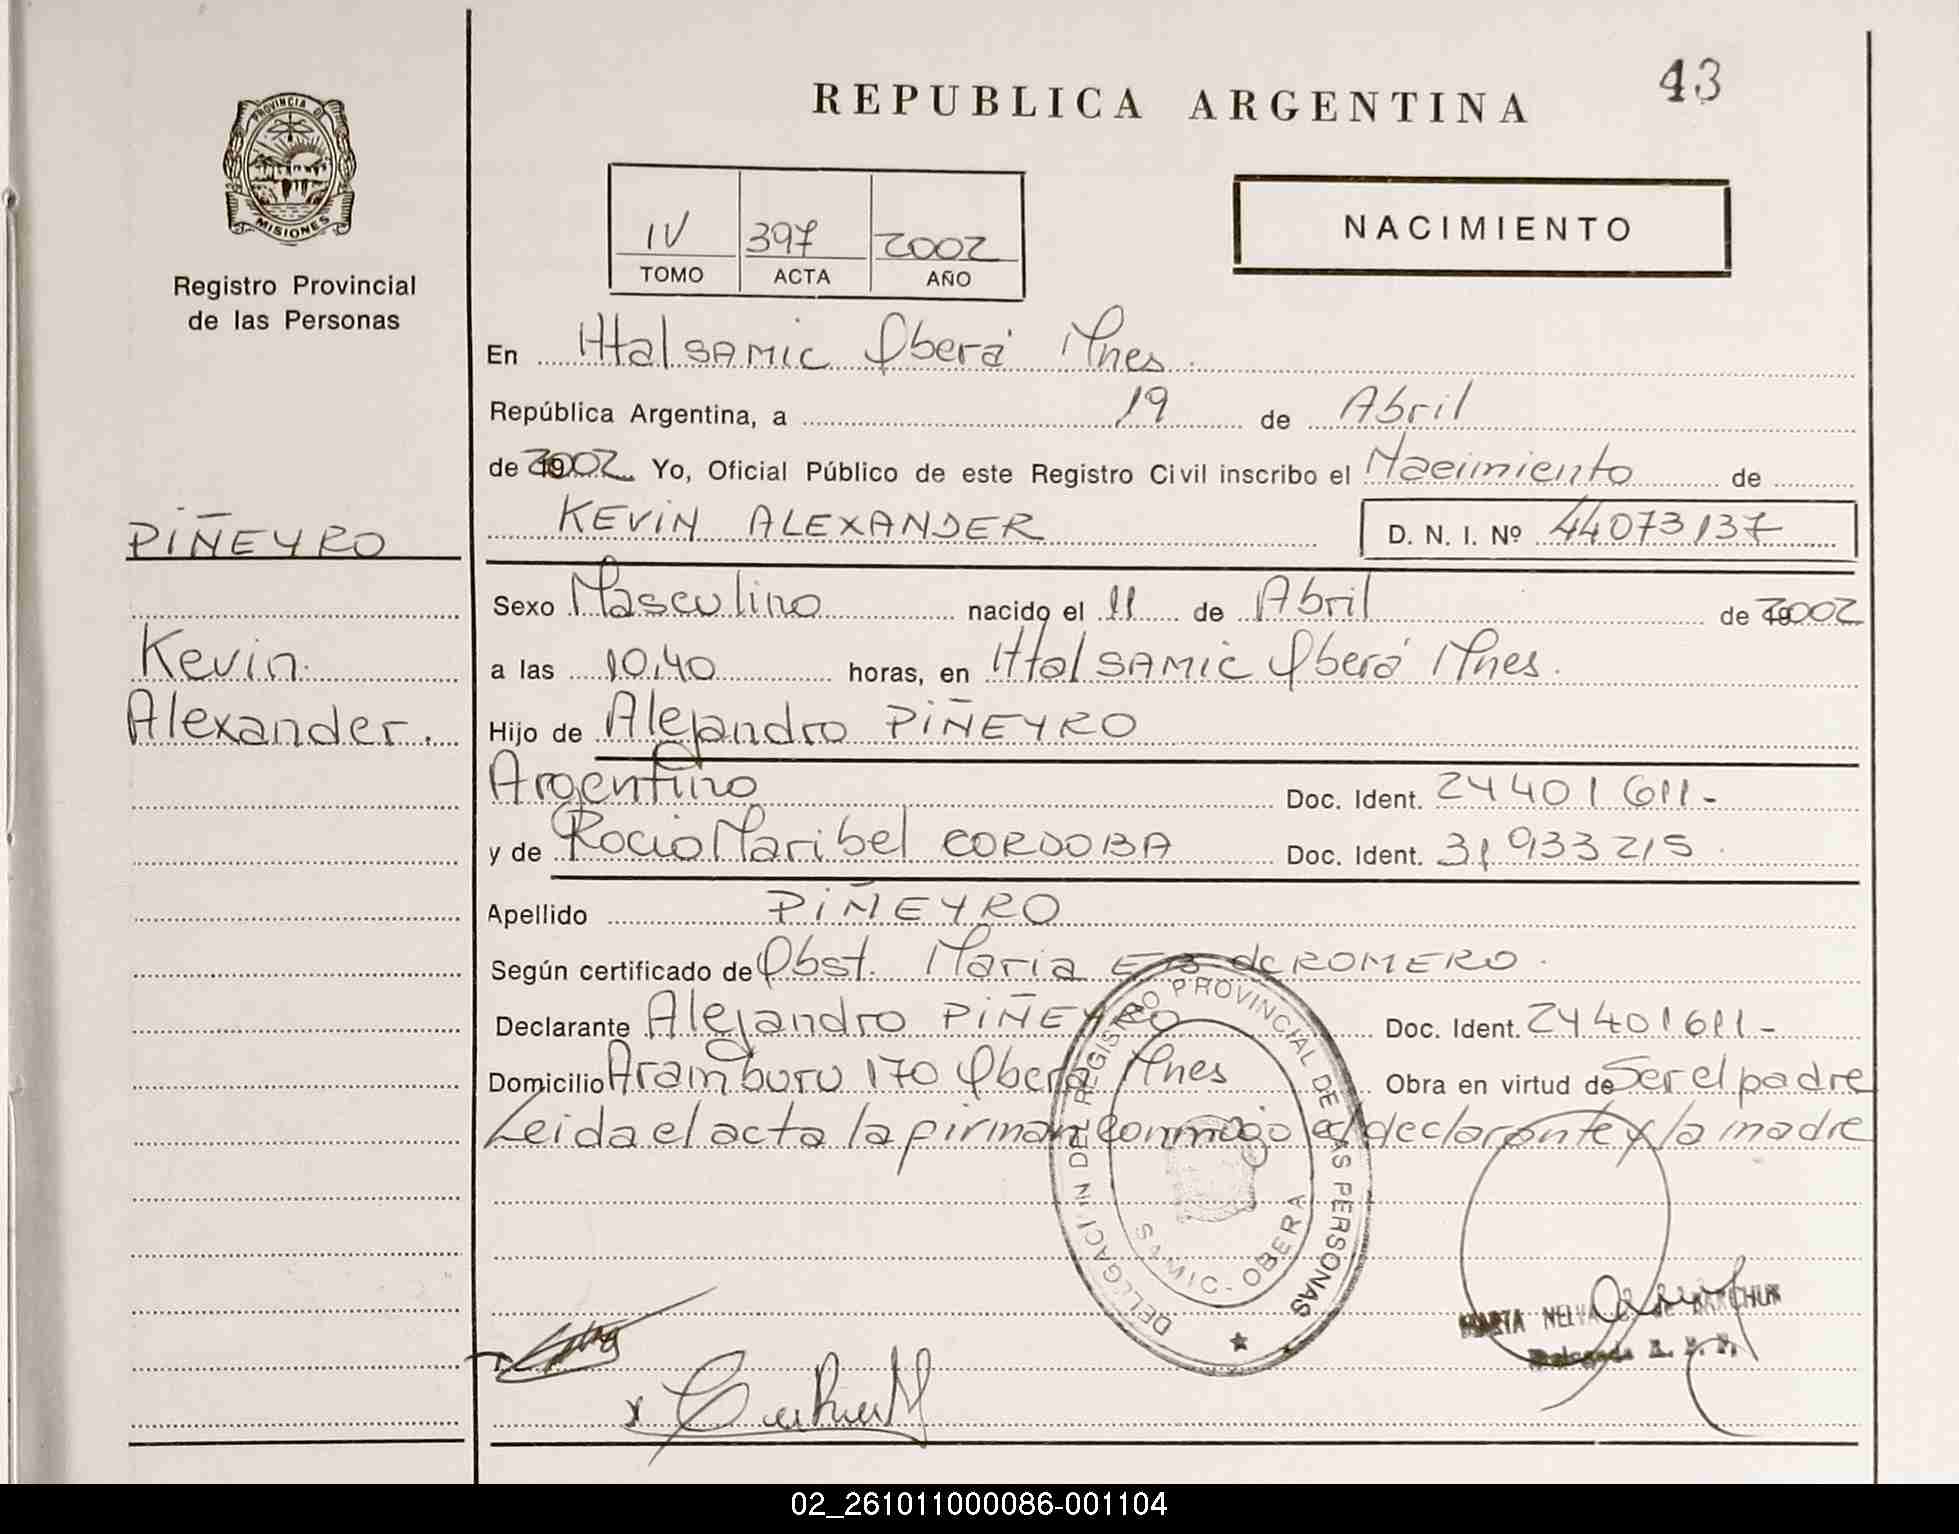 43
REPUBLICA ARGENTINA
PROVINCIA DE
MISIONES
Registro Provincial
de las Personas
IV 397 2002
TOMO ACTA AÑO
NACIMIENTO
En Htal SAMIC Oberá Mnes.
República Argentina, a 19 de Abril
de 2002 Yo, Oficial Público de este Registro Civil inscribo el Nacimiento de
KEVIN ALEXANDER D. N. I. Nº 44073137
PIÑEYRO
Kevin
Alexander.
Sexo Masculino nacido el 11 de Abril de 2002
a las 10,40 horas, en Htal SAMIC Oberá Mnes.
Hijo de Alejandro PIÑEYRO
Argentino Doc. Ident. 24401611-
y de Rocio Maribel CORDOBA Doc. Ident. 31933215
Apellido PIÑEYRO
Según certificado de Obst. Maria E B de ROMERO.
Declarante Alejandro PIÑEYRO Doc. Ident. 24401611-
Domicilio Aramburu 170 Oberá Mnes Obra en virtud de Ser el padre
Leida el acta la firman conmigo el declarante y la madre
DELEGACION DEL REGISTRO PROVINCIAL DE LAS PERSONAS
SAMIC - OBERA
MARTA NELVA DE BARCHUK
Delegada R. P. P.
02_261011000086-001104